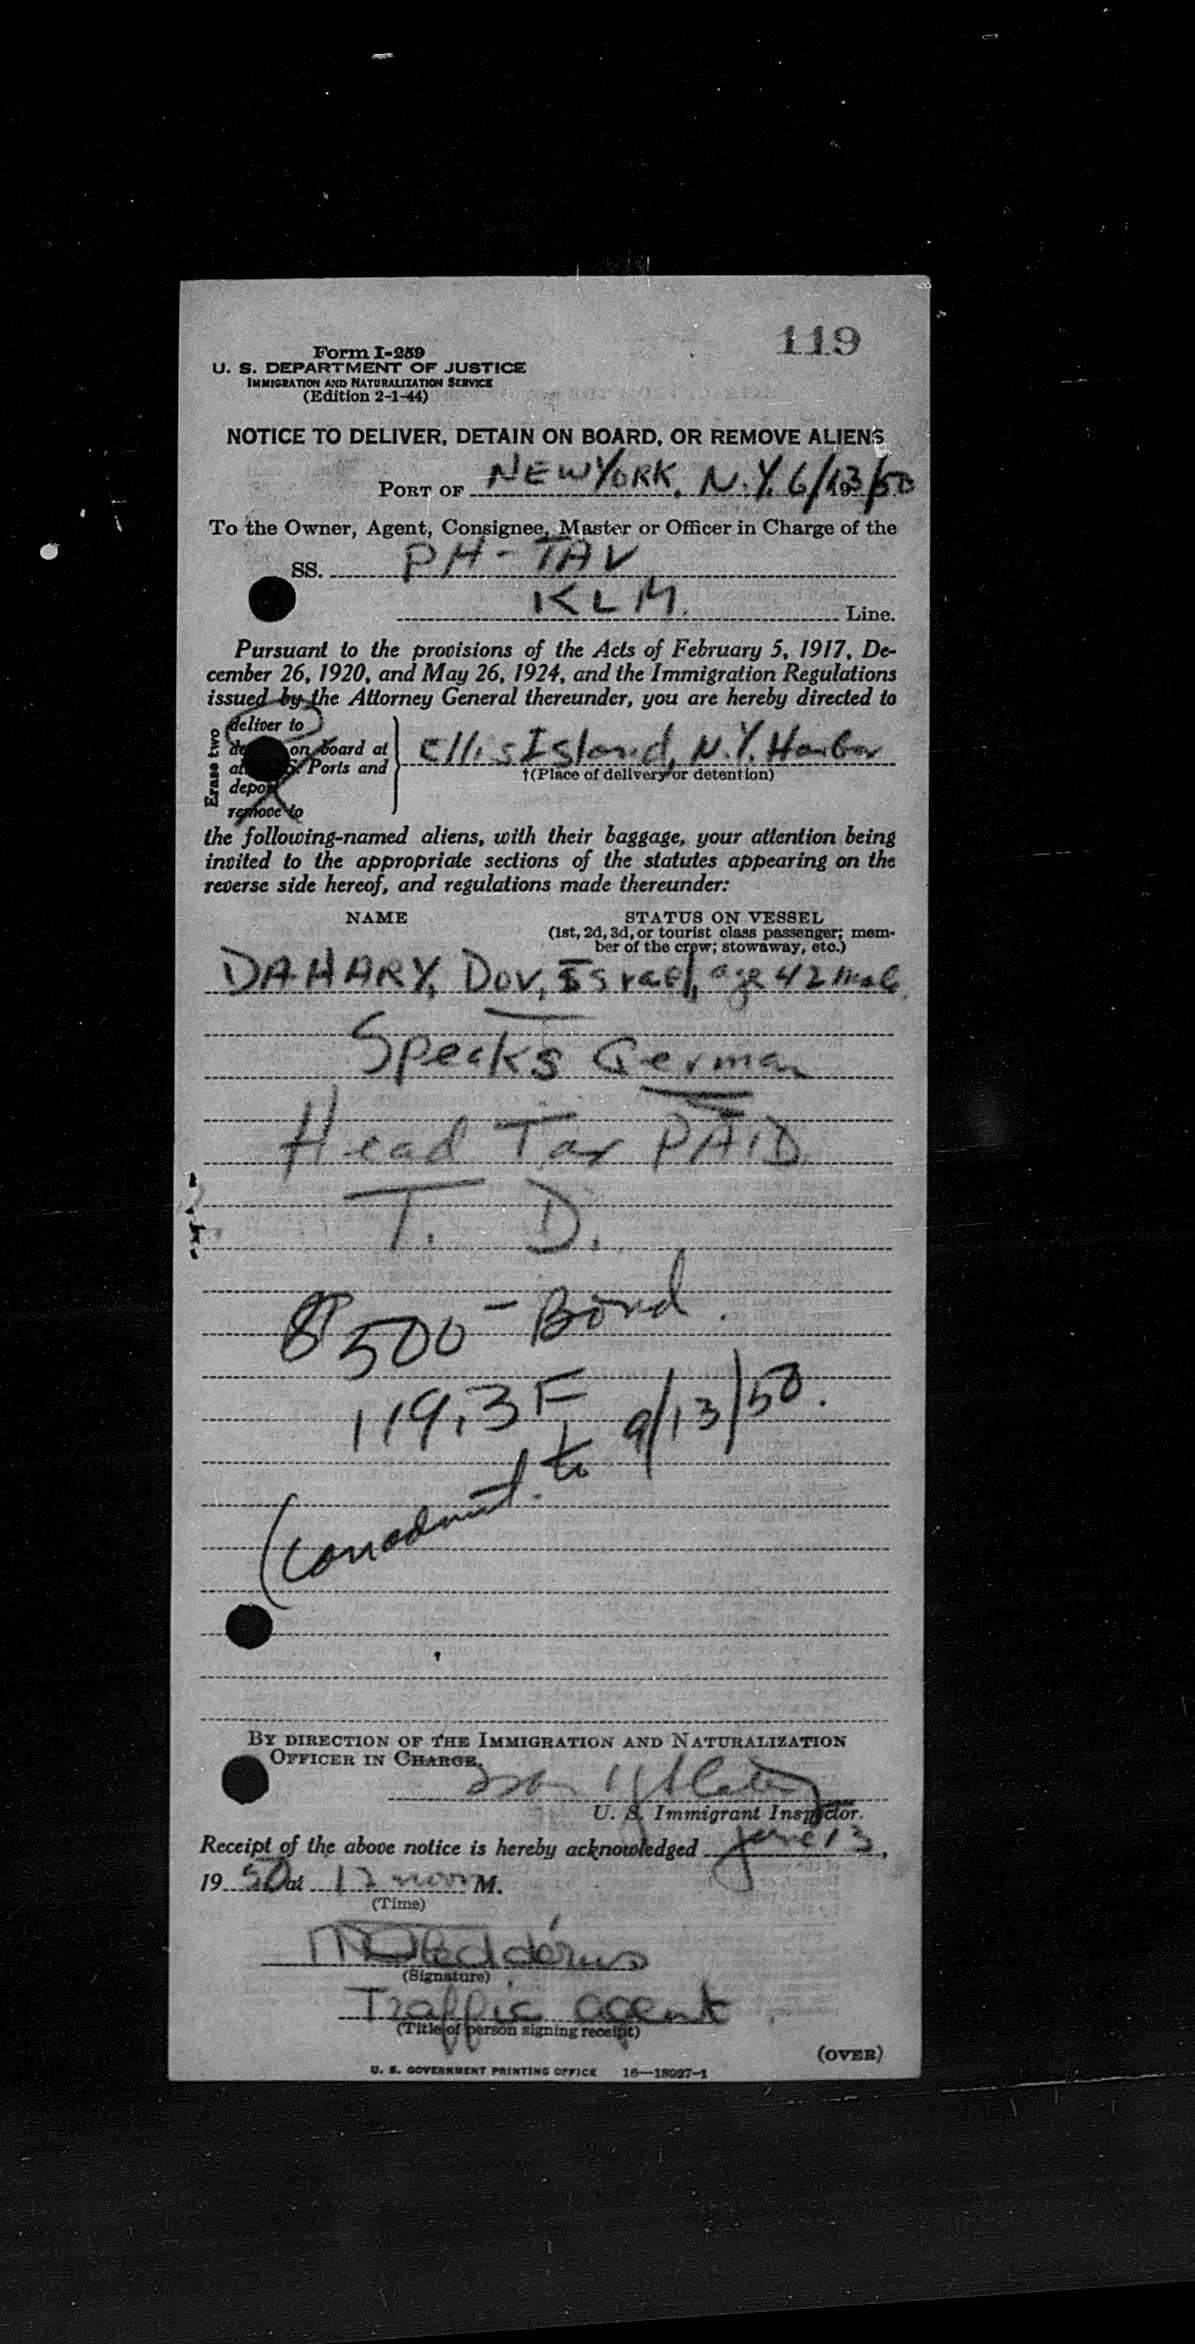 119
Form I-259
U. S. DEPARTMENT OF JUSTICE
IMMIGRATION AND NATURALIZATION SERVICE
(Edition 2-1-44)
NOTICE TO DELIVER, DETAIN ON BOARD, OR REMOVE ALIENS
PORT OF NEW YORK, N.Y. 6/13/50 19
To the Owner, Agent, Consignee, Master or Officer in Charge of the
SS. PH-TAV
KLM. Line.
Pursuant to the provisions of the Acts of February 5, 1917, De-
cember 26, 1920, and May 26, 1924, and the Immigration Regulations
issued by the Attorney General thereunder, you are hereby directed to
Erase two
deliver to
on board at
Ports and
deport
remove to
Ellis Island, N.Y. Harbor
†(Place of delivery or detention)
the following-named aliens, with their baggage, your attention being
invited to the appropriate sections of the statutes appearing on the
reverse side hereof, and regulations made thereunder:
NAME STATUS ON VESSEL
(1st, 2d, 3d, or tourist class passenger; mem-
ber of the crew; stowaway, etc.)
DAHARY, Dov, Israel, age 42 male
Speaks German
Head Tax PAID
T. D.
$500 - Bond.
119.3F
to 9/13/50.
BY DIRECTION OF THE IMMIGRATION AND NATURALIZATION
OFFICER IN CHARGE.
U. S. Immigrant Inspector.
Receipt of the above notice is hereby acknowledged June 13,
19 50 at 12 noon M.
(Time)
(Signature)
Traffic agent
(Title of person signing receipt)
(OVER)
U. S. GOVERNMENT PRINTING OFFICE 16—18027-1